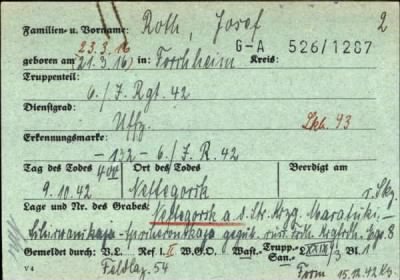 Familien- u. Vorname: Roth, Josef 2
23.3.16 G-A 526/1287
geboren am (21.3.16) in: Forchheim Kreis:
Truppenteil:
6./J. Rgt. 42
Dienstgrad:
Uffz. 43
Erkennungsmarke:
-132- 6./J.R. 42
Tag des Todes Ort des Todes Beerdigt am
9.10.42 Neftegorsk
Lage und Nr. des Grabes: Neftegorsk a.d. Str. Krzg. Maratuki,-
Gemeldet durch: V.L. Ref. II W.G.O. Wast.- Trupp.- San.- XXIX/3 Bl. 1
V4 Feldlaz. 54 Form. 15.12.42